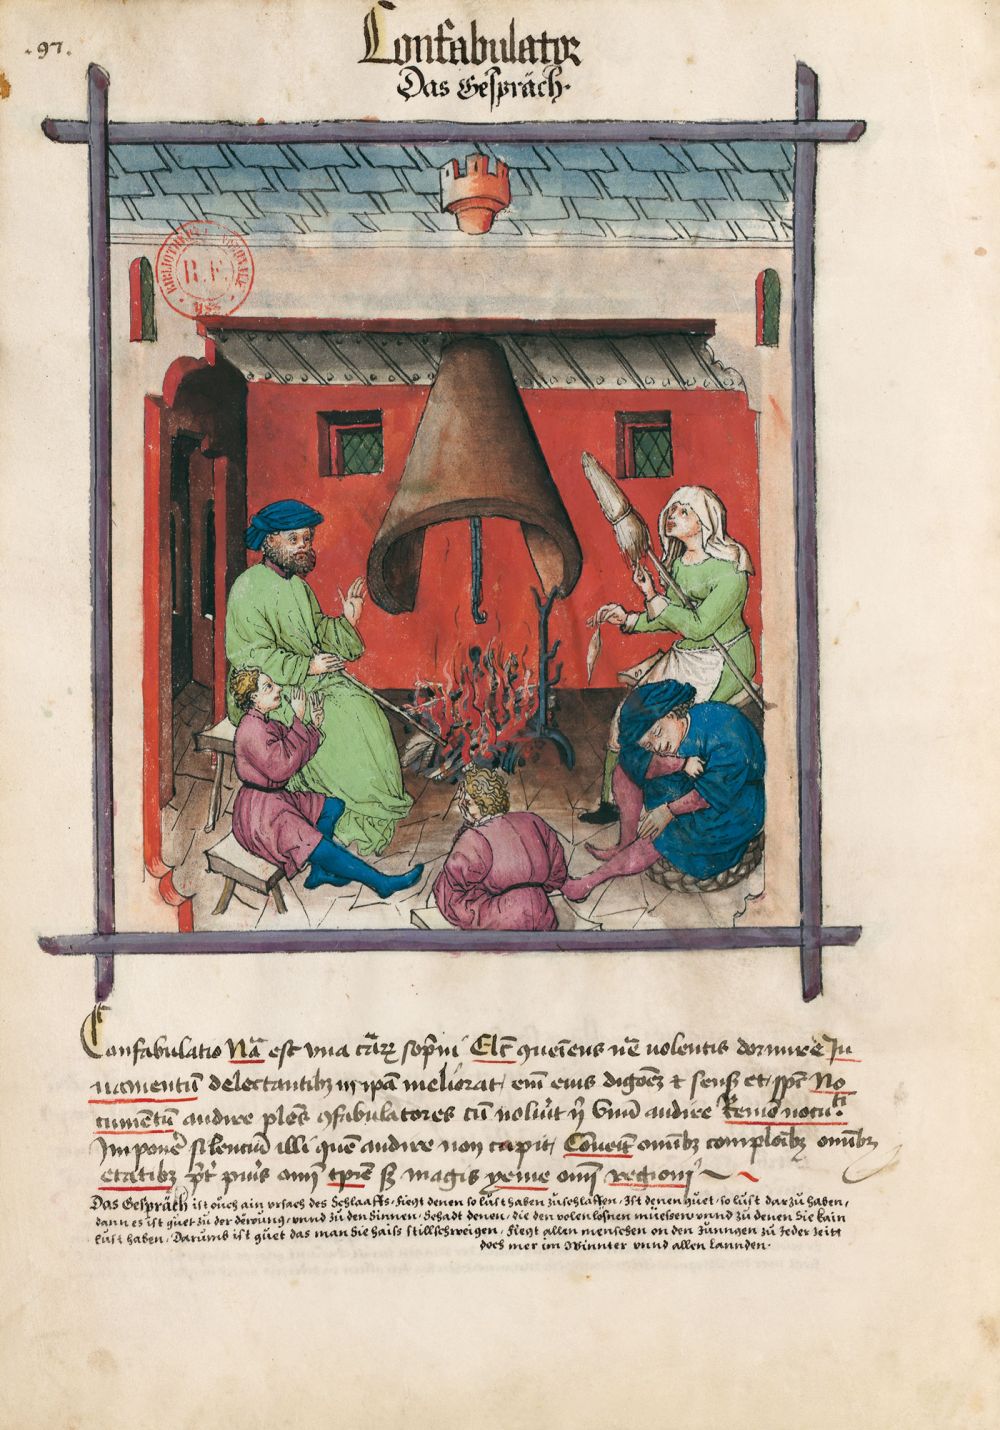 .97.
Confabulator
Das Gespräch.
BIBLIOTHEQUE NATIONALE
R.F.
MSS
Confabulatio Nã est vna cãrz sop̃ni Elc̃ queiens nẽ volentis dormire Ju
uamentũ delectantibz in ipã meliorat eni eius digõez et sensz et spc̃ No
cumentũ audire ples ꝯfabulatores cũ audire Remo nocti
Jmponẽ silenciũ illi quẽ audire non cupit Couẽit omĩbz comploĩbz omĩbz
etatibz p̃t omi tpr̃e sz magis yeme omi regioni
Das Gespräch ist ouch ain vrsach des Schlaaffs, fuegt denen so lust haben zuschlaffen, Ist denen guet, so lust darzu haben,
dann es ist guet zu der döwung, vnnd zu den Sinnen, Schadt denen, die den volen losnen müessen, vnnd zu denen Sie kain
lust haben, Darumb ist guet das man Sie haiss stillschweigen, fuegt allen menschen on den Junngen zu Jeder Zeitt
doch mer im Winnter vnnd allen Lannden.